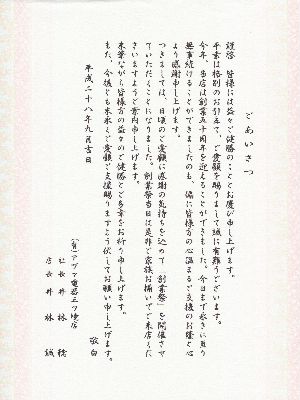 ごあいさつ
謹啓 皆様には益々ご健勝のこととお慶び申し上げます。
平素は格別のお引立て、ご愛顧を賜りまして誠に有難うございます。
今年、当店は創業五十周年を迎えることができました。今日まで永きに亘り
無事続けることができましたのも、偏に皆様方の心温まるご支援のお蔭と心
より感謝申し上げます。
つきましては、日頃のご愛顧に感謝の気持ちを込めて「創業祭」を開催させ
ていただくことになりました。創業祭当日は是非ご家族お揃いでご来店くだ
さいますようご案内申し上げます。
末筆ながら皆様方の益々のご健勝とご多幸をお祈り申し上げます。
また、今後とも末永くご愛顧ご支援賜りますよう伏してお願い申し上げます。
敬白
平成二十八年九月吉日
(有)アヅマ電器三ツ境店
社長 井林 稔
店長 井林 誠